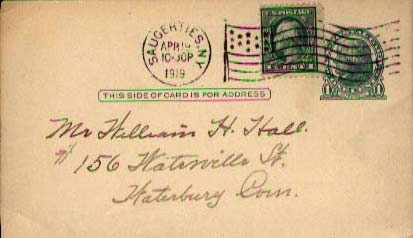 SAUGERTIES, N.Y.
APR 19
10-30P
1919
U.S. POSTAGE
THIS SIDE OF CARD IS FOR ADDRESS
Mr William H. Hall.
# 156 Waterville St.
Waterbury Conn.